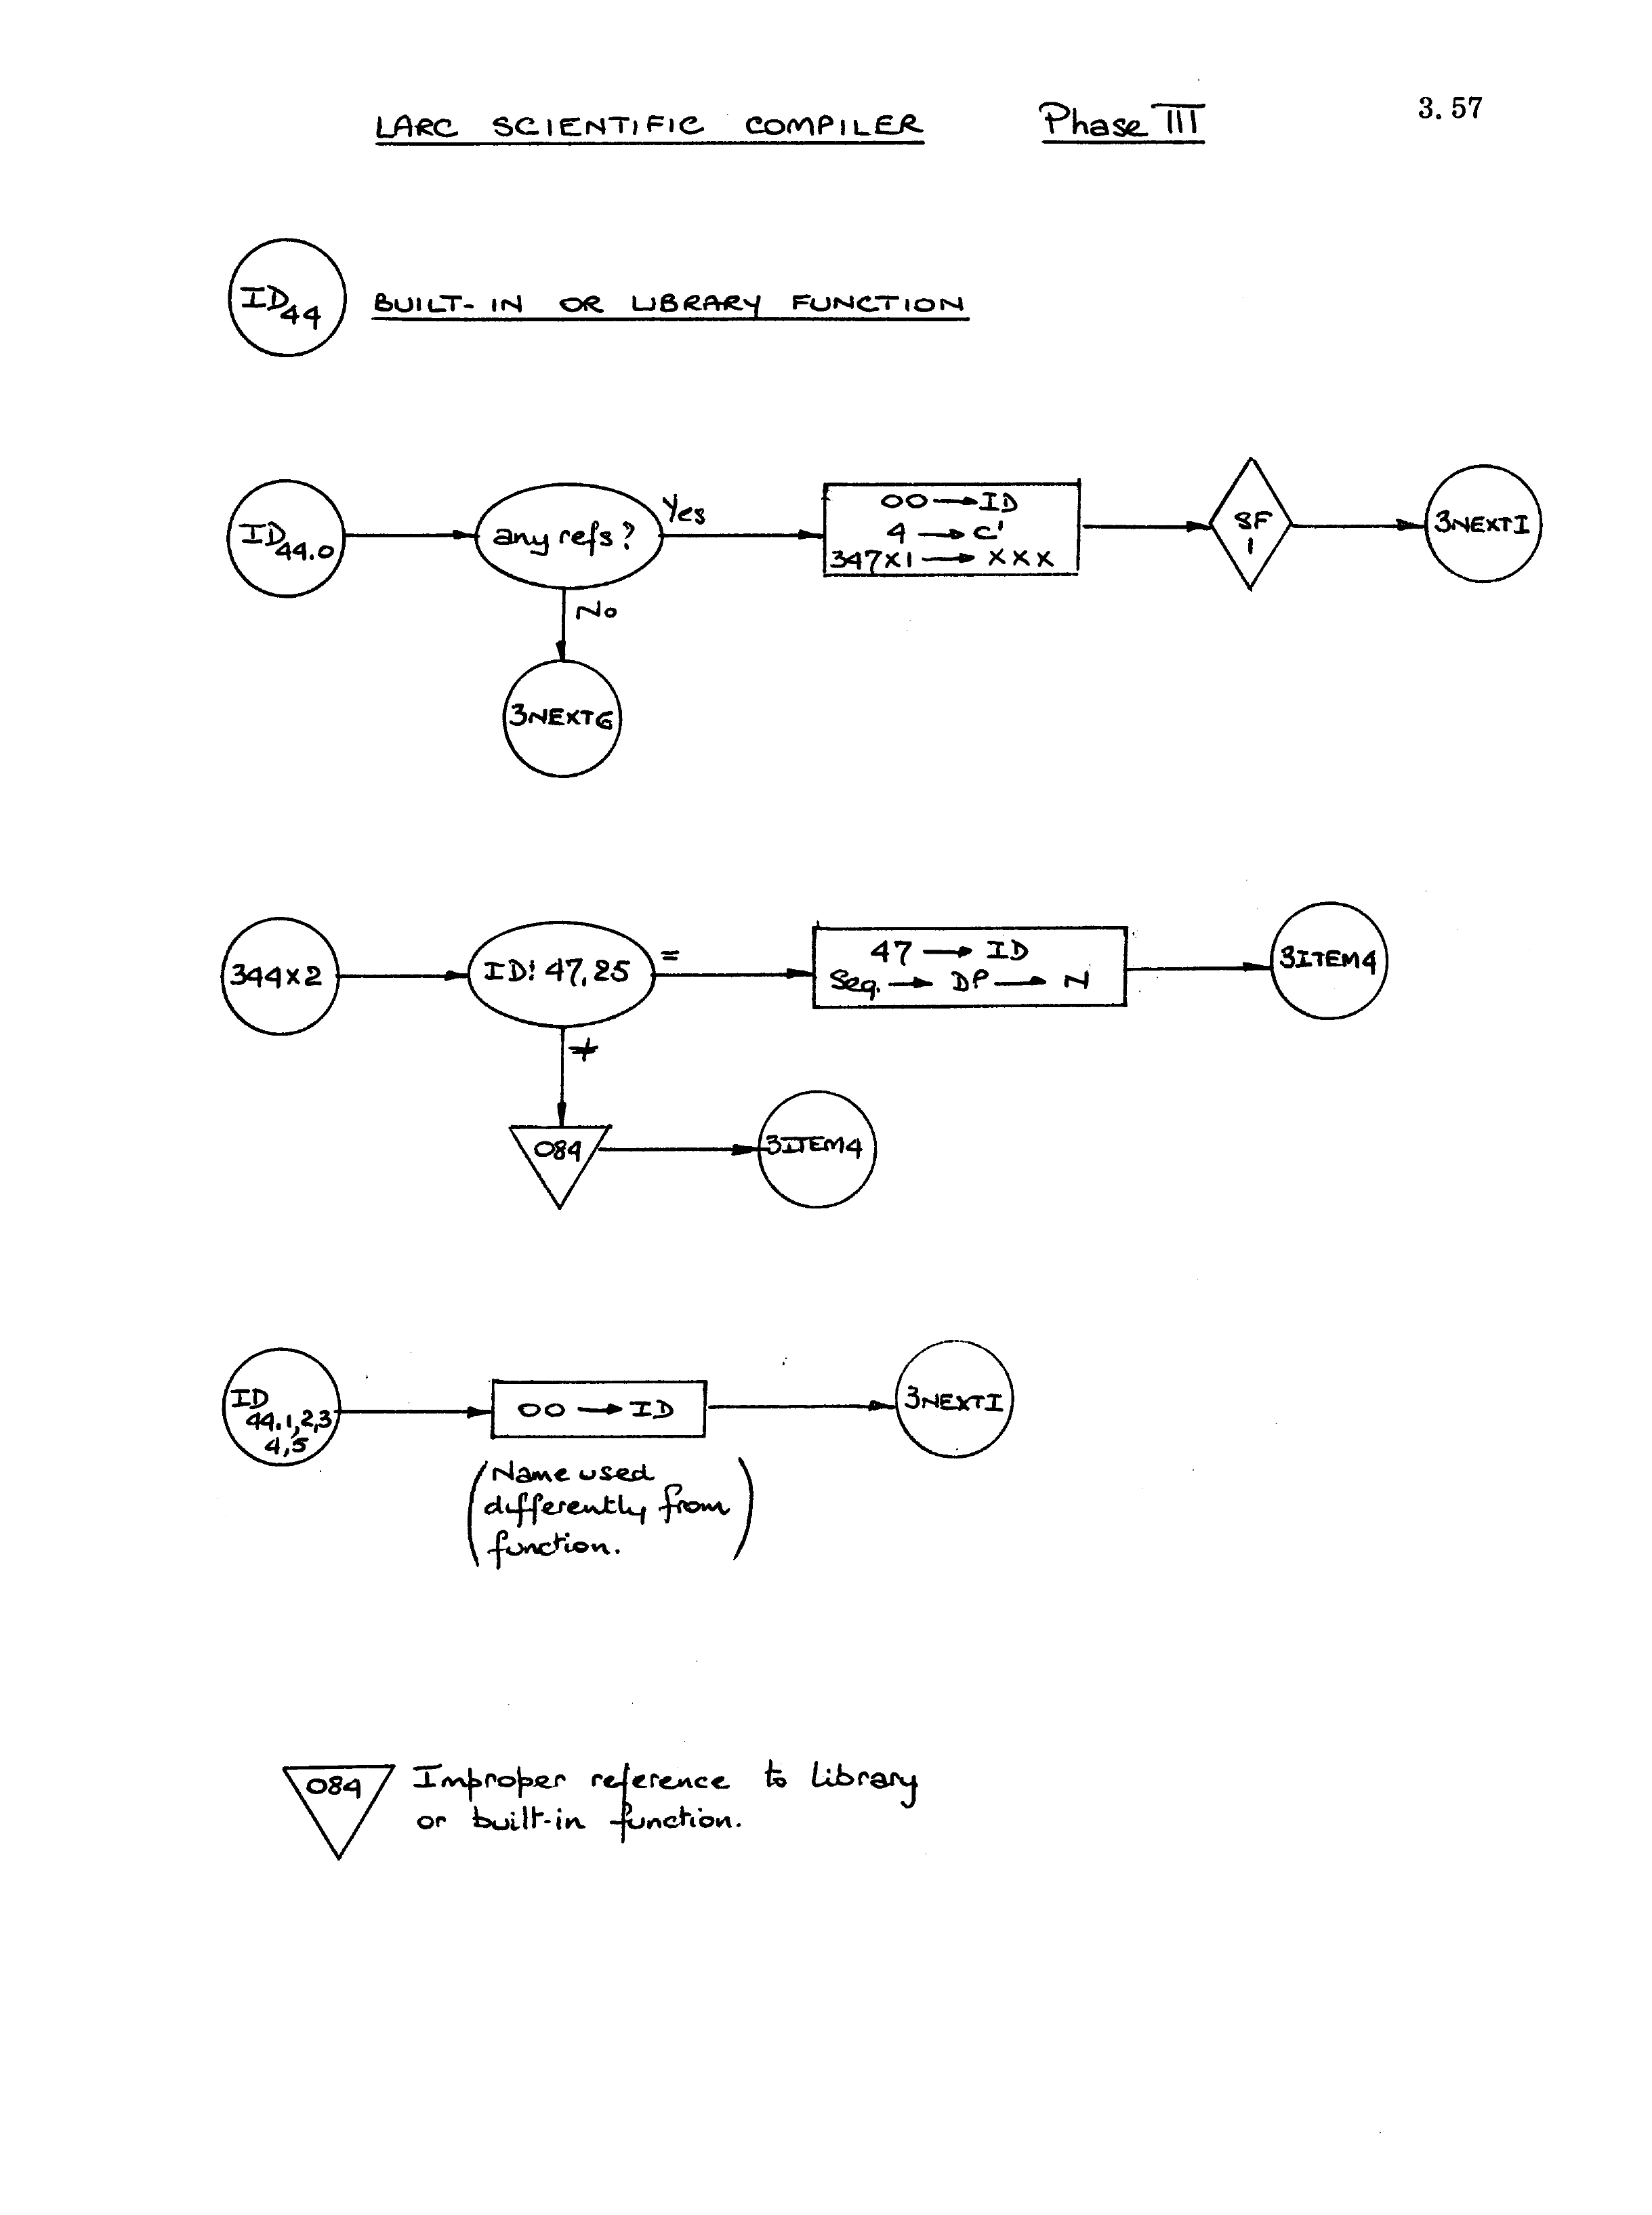 LARC SCIENTIFIC COMPILER Phase III 3.57
ID44 BUILT-IN OR LIBRARY FUNCTION
ID44.0
any refs?
Yes
00 → ID
4 → C'
347X1 → XXX
8F
1
3NEXTI
No
3NEXT6
344X2
ID! 47,25
=
47 → ID
Seq. → DP → N
3ITEM4
≠
084
3ITEM4
ID
44.1,2,3
4,5
00 → ID
3NEXTI
(Name used
differently from
function.)
084
Improper reference to library
or built-in function.